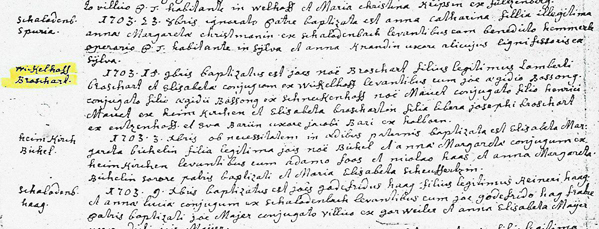 to villio p. t. habitante in welhoff et Maria christina
Schaladenb. 1703. 23. Xbris ignorato patre baptizata est anna catharina fillia illegitima
Spuria. anna Margareta christmanin ex schaladenbach levantibus cum benedicto hemmerle
operario p. t. habitante in sylva et anna uxore alicujus lignifissoris ex
Sylva.
Winkelhoff 1703. 18. gbris baptizatus est joes noë Broschart filius legitimus Lamberti
Broschart. Broschart et Elisabeta conjugum ex Winkelhoff levantibus cum joe ægidio Bossong
conjugato filio ægidii Bossong ex schneckenhoff noë Mauet conjugato filio henrici
Mauet ex heimkirchen et Elisabeta broschartin filia libera josephi broschart
ex entzenhoff et Eva Bariin uxore jacobi Bari ex holborn.
heimkirch 1703. 3. Xbris ob necessitatem in ædibus paternis baptizata est Elisabeta Mar-
Bickel. gareta bickelin filia legitima jois noë Bickel et anna Margareta conjugum ex
heimkirchen levantibus cum adamo foos et nicolao haas, et anna Margareta
Bickelin sorore patris baptizati et Maria Elisabeta
Schaladenb. 1703. 9. Xbris baptizatus est joes godefridus haag filius legitimus Reineri haag
haag. et anna lucia conjugum ex schaladenbach levantibus cum joe godefrido haag fratre
patris baptizati joe Majer conjugato villico ex gorweiler et anna Elisabeta Majer
uxore